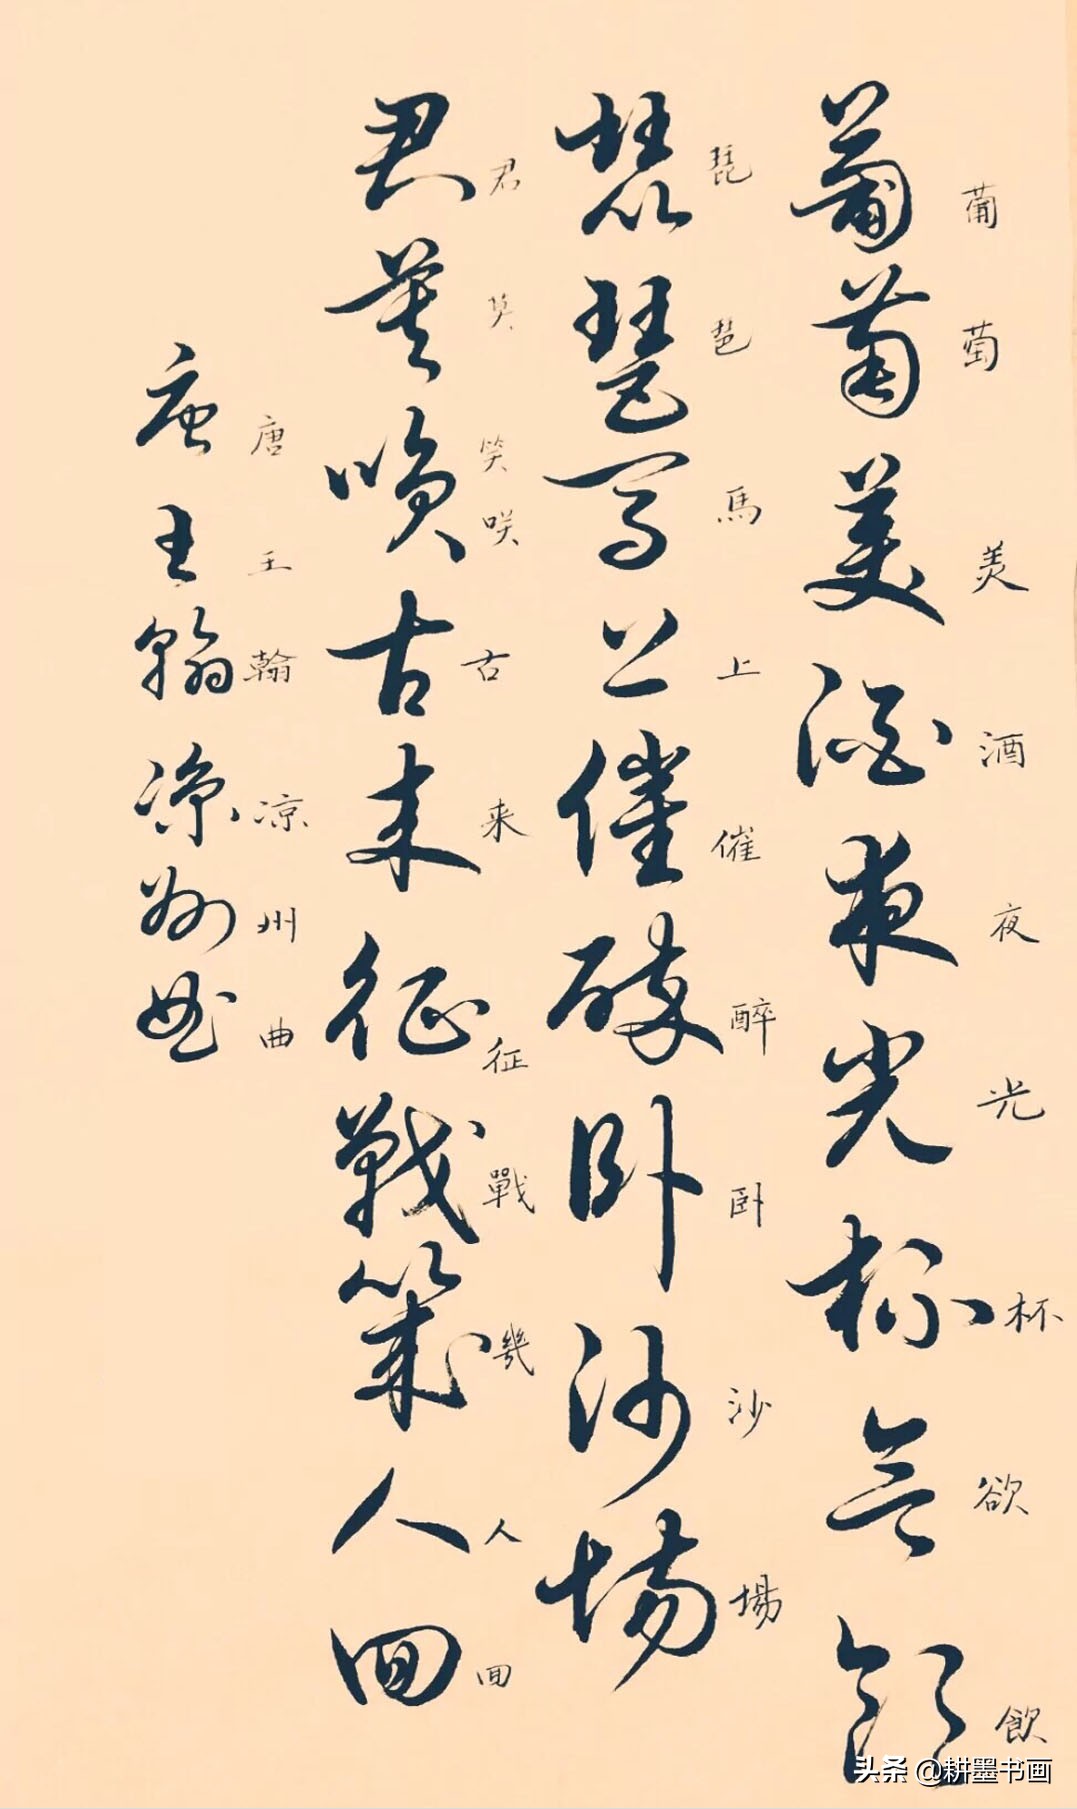 葡萄美酒夜光杯欲飲
葡萄美酒夜光杯欲飲
琵琶馬上催醉卧沙場
琵琶馬上催醉卧沙場
君莫笑咲古来征戰幾人囬
君莫咲古来征戰幾人囬
唐王翰凉州曲
唐王翰凉州曲
头条 @耕墨书画